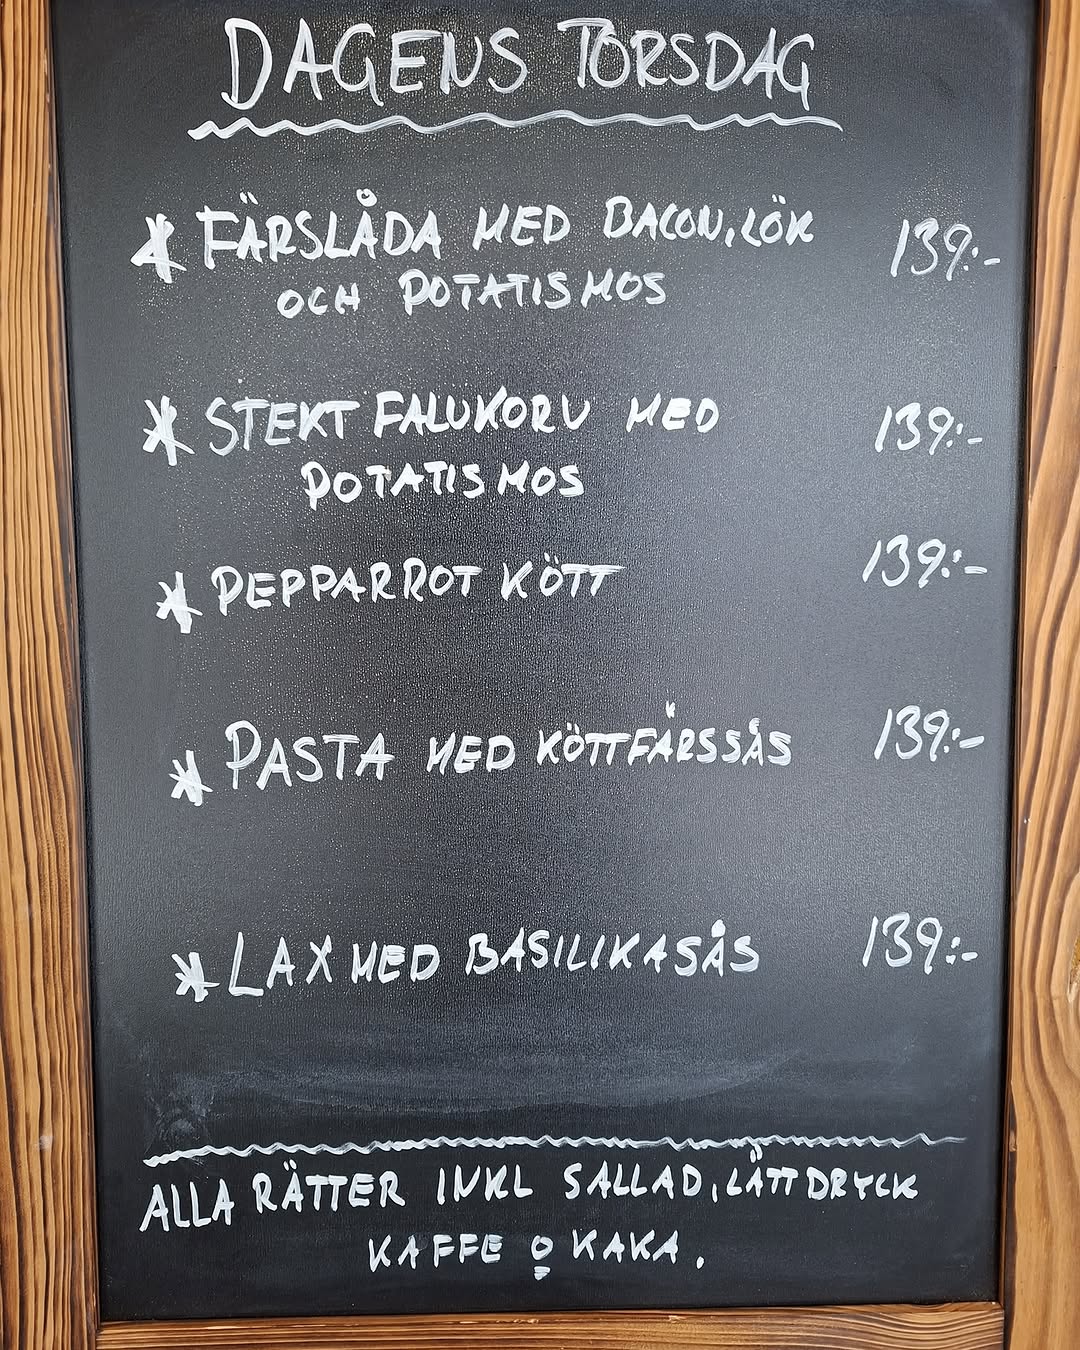 DAGENS TORSDAG
* FÄRSLÅDA MED BACON, LÖK 139:-
OCH POTATISMOS
* STEKT FALUKORV MED 139:-
POTATISMOS
* PEPPARROT KÖTT 139:-
* PASTA MED KÖTTFÄRSSÅS 139:-
* LAX MED BASILIKASÅS 139:-
ALLA RÄTTER INKL SALLAD, LÄTTDRYCK
KAFFE o KAKA.